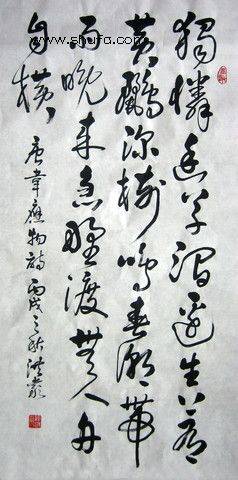 www.shufa.com
獨憐幽草澗邊生上有
黄鸝深樹鳴春潮帶
雨晚来急野渡無人舟
自横
唐韋應物詩 丙戌之秋